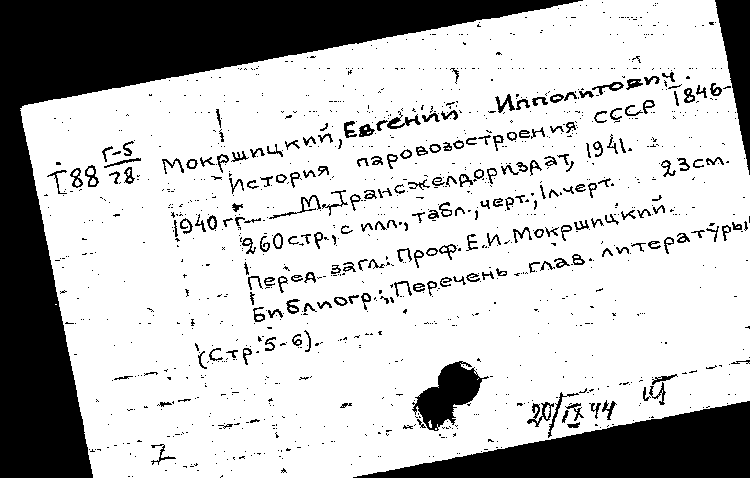 Т88 Г-5/28 Мокршицкий, Евгений Ипполитович.
История паровозостроения СССР 1846-
1940 гг. М., Трансжелдориздат, 1941.
260 стр.; с илл., табл., черт.; 1 л. черт. 23 см.
Перед загл.: Проф. Е.И. Мокршицкий.
Библиогр.: „Перечень глав. литературы"
(Стр. 5-6).
20/IX 44
7